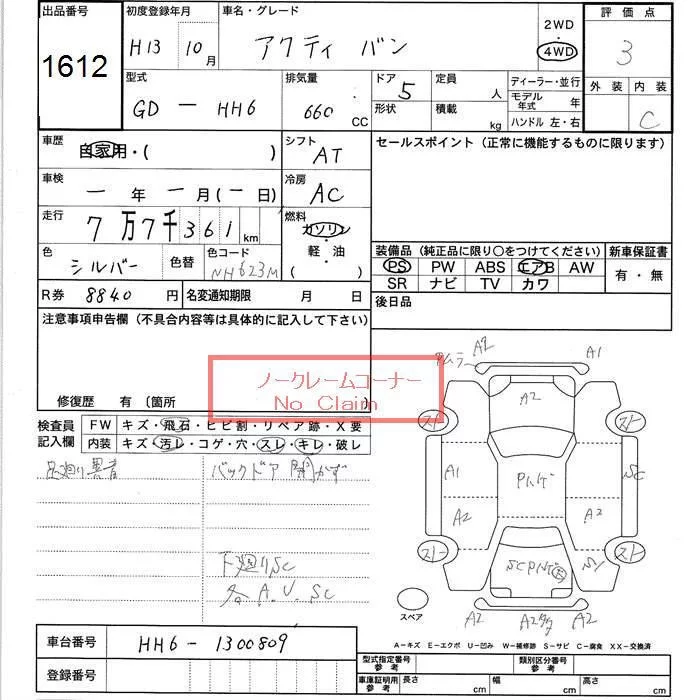 出品番号
1612
初度登録年月
H13 10月
車名・グレード
アクティ バン
2WD
・
4WD
評価点
3
外装 内装
C
型式
GD - HH6
排気量
660 CC
ドア
5
形状
定員
人
積載
kg
ディーラー・並行
モデル年式 年
ハンドル 左・右
車歴
自家用・( )
シフト
AT
セールスポイント (正常に機能するものに限ります)
車検
ー年 ー月(ー日)
冷房
AC
走行
7万7千361km
燃料
ガソリン
・
軽・油
( )
色
シルバー
色替
色コード
NH623M
装備品 (純正品に限り○をつけてください)
新車保証書
PS PW ABS エアB AW
SR ナビ TV カワ
有・無
R券 8840円
名変通知期限 月 日
後日品
注意事項申告欄 (不具合内容等は具体的に記入して下さい)
ノークレームコーナー
No Claim
修復歴 有 〔箇所 〕
検査員記入欄
FW キズ・飛石・ヒビ割・リペア跡・X要
内装 キズ・汚レ・コゲ・穴・スレ・キレ・破レ
バックドア開かず
下廻りSC
各A.U.SC
A2
A1
A2
A1
Pハゲ
SC
A2
A2
スペア
A2
A2
A-キズ E-エクボ U-凹み W-補修跡 S-サビ C-腐食 XX-交換済
車台番号 HH6-1300809
登録番号
型式指定番号 参考
類別区分番号 参考
車庫証明用 参考
長さ cm
幅 cm
高さ cm